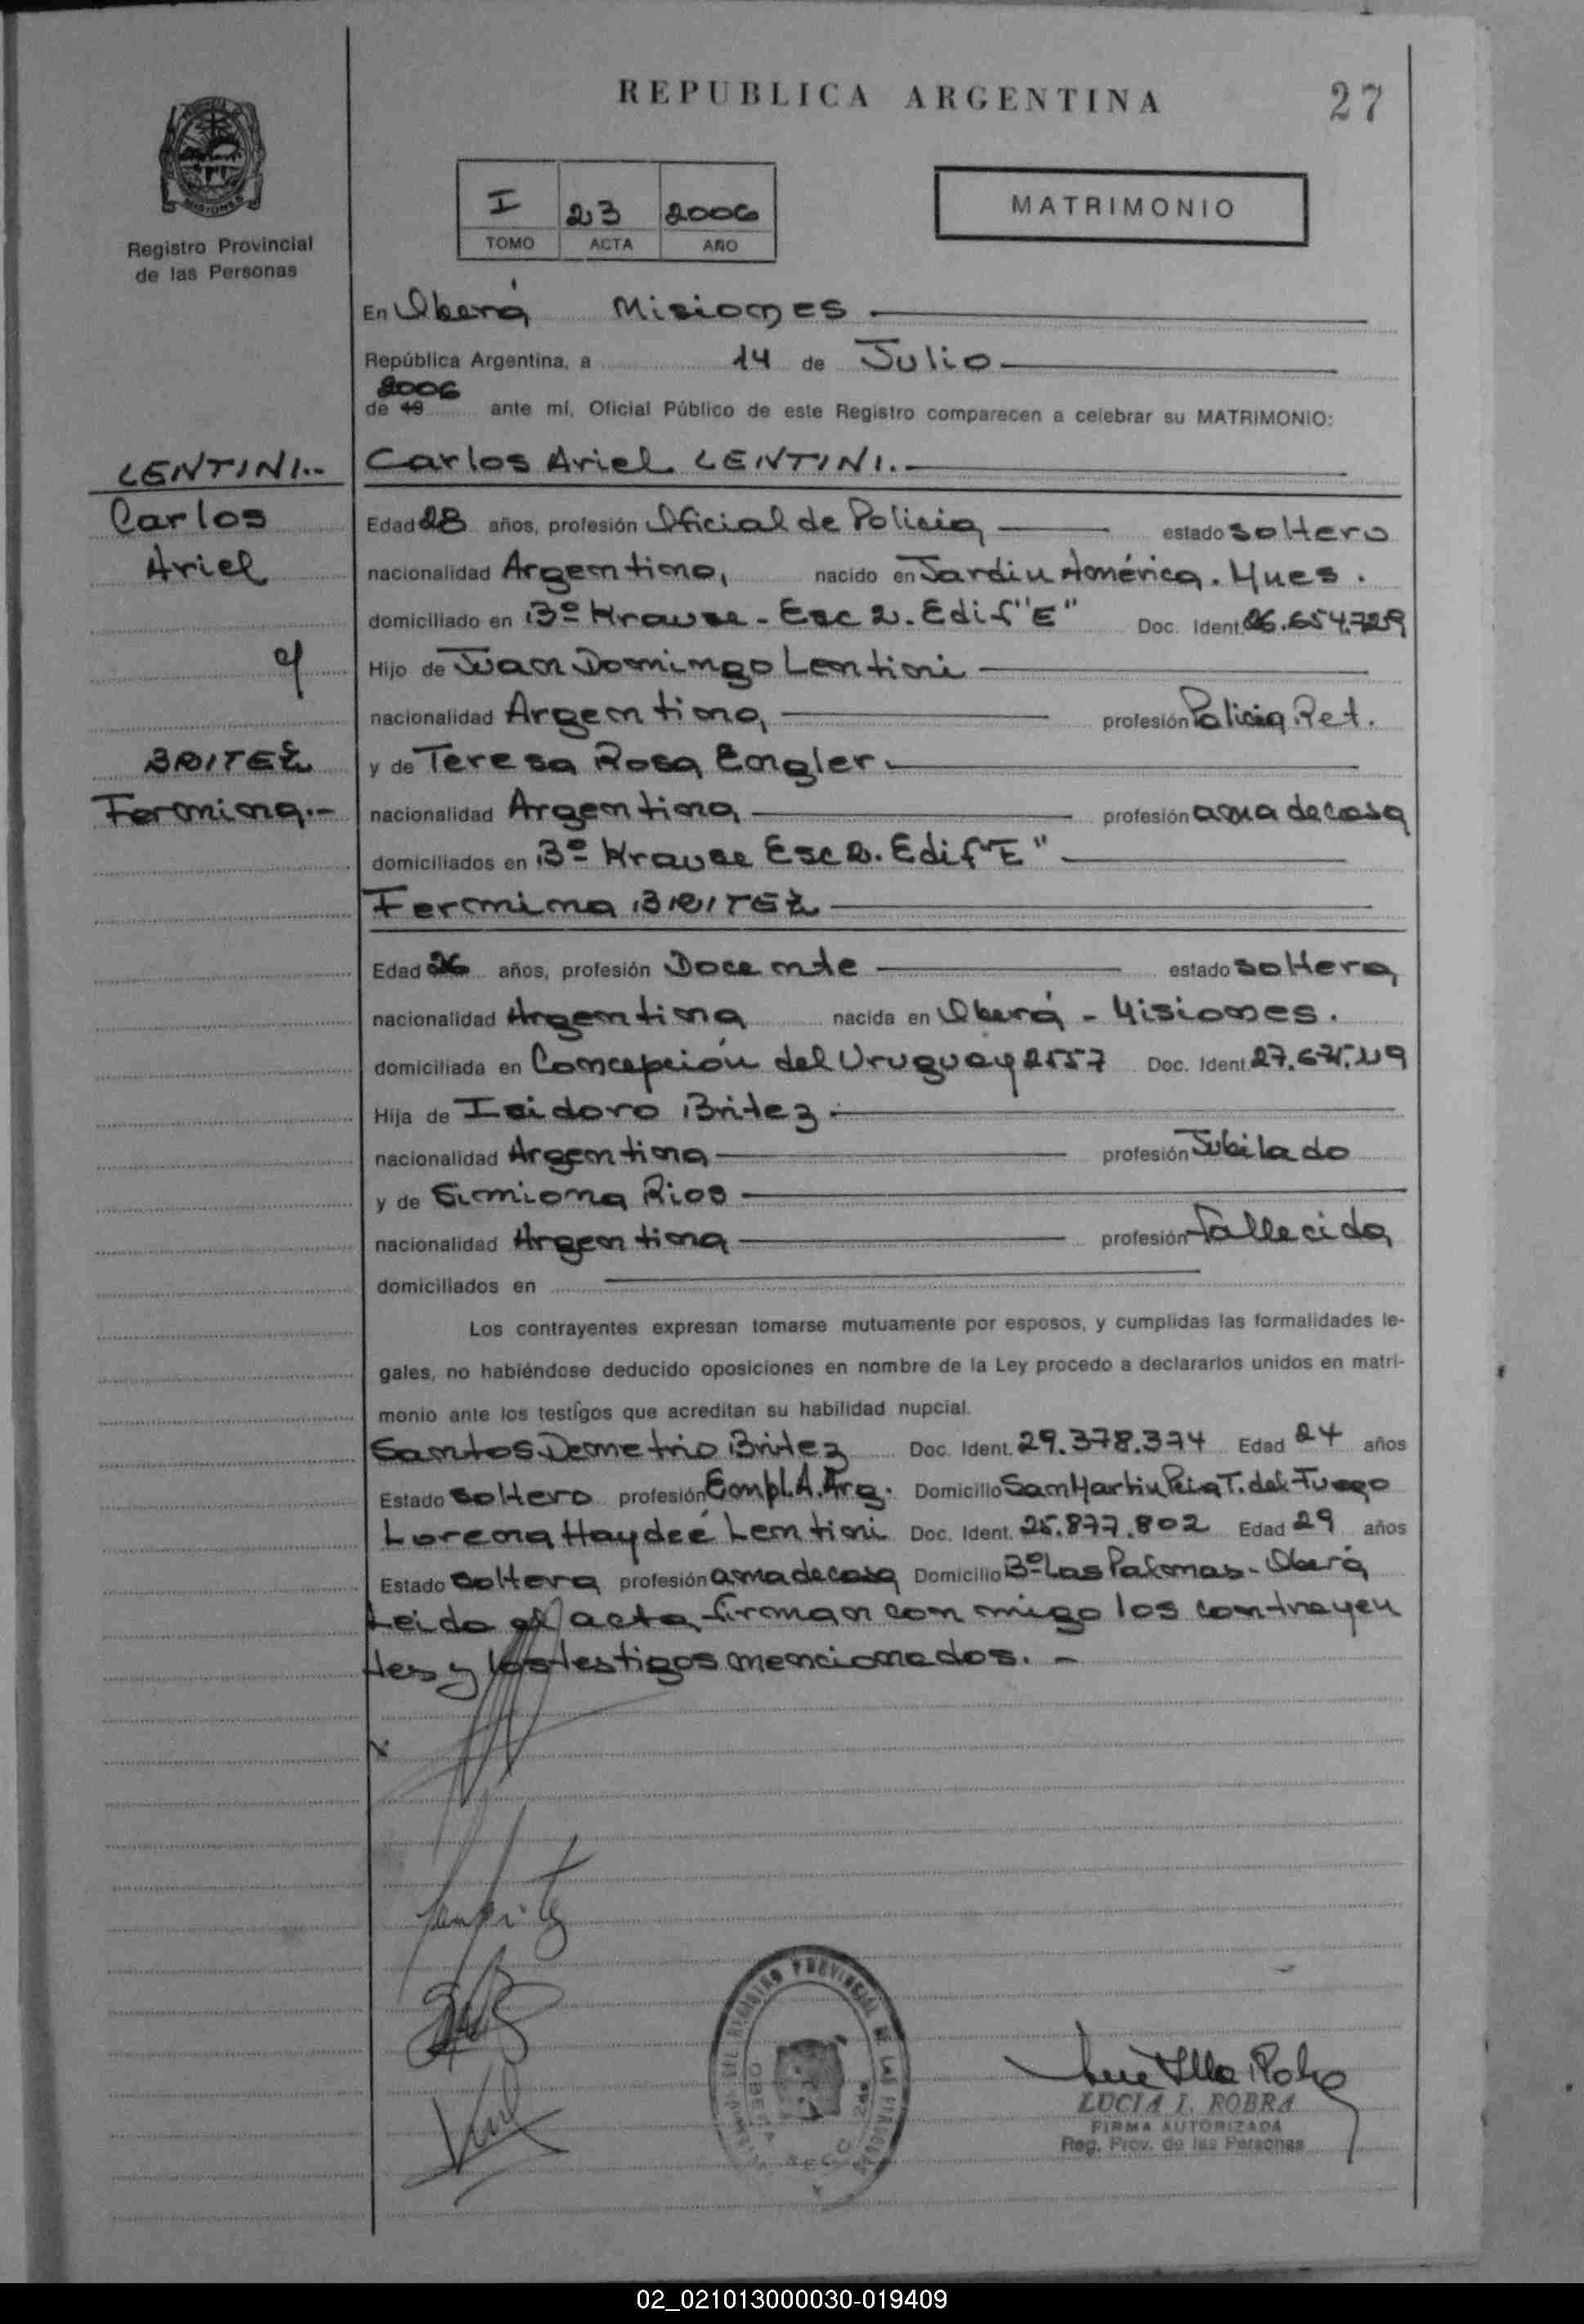 REPUBLICA ARGENTINA
27
MISIONES
Registro Provincial
de las Personas
I 23 2006
TOMO ACTA AÑO
MATRIMONIO
En Oberá Misiones
República Argentina, a 14 de Julio
2006
de 19 ante mí, Oficial Público de este Registro comparecen a celebrar su MATRIMONIO:
LENTINI.-
Carlos
Ariel
y
BRITEZ
Fermina.-
Carlos Ariel LENTINI.-
Edad 28 años, profesión Oficial de Policia estado soltero
nacionalidad Argentina, nacido en Jardin América. Mnes.
domiciliado en Bº Krause - Esc 2. Edif "E" Doc. Ident. 26.654.729
Hijo de Juan Domingo Lentini
nacionalidad Argentina, profesión Policia Ret.
y de Teresa Rosa Engler.
nacionalidad Argentina profesión ama de casa
domiciliados en Bº Krause Esc 2. Edif "E"
Fermina BRITEZ
Edad 26 años, profesión Docente estado soltera
nacionalidad Argentina nacida en Oberá - Misiones.
domiciliada en Concepción del Uruguay 2557 Doc. Ident
Hija de Isidoro Britez.
nacionalidad Argentina profesión Jubilado
y de Simiona Rios
nacionalidad Argentina profesión fallecida
domiciliados en
Los contrayentes expresan tomarse mutuamente por esposos, y cumplidas las formalidades le-
gales, no habiéndose deducido oposiciones en nombre de la Ley procedo a declararlos unidos en matri-
monio ante los testigos que acreditan su habilidad nupcial.
Santos Demetrio Britez Doc. Ident. 29.378.374 Edad 24 años
Estado soltero profesión Empl. A. Arg. Domicilio San Martin T. del Fuego
Lorena Haydeé Lentini Doc. Ident. 25.877.802 Edad 29 años
Estado soltera profesión ama de casa Domicilio Bº Las Palmas - Oberá
Leida el acta firman con migo los contrayen
tes y los testigos mencionados. -
REGISTRO PROVINCIAL DE LAS PERSONAS
OBERA
LUCIA I. ROBRA
FIRMA AUTORIZADA
Reg. Prov. de las Personas
02_021013000030-019409